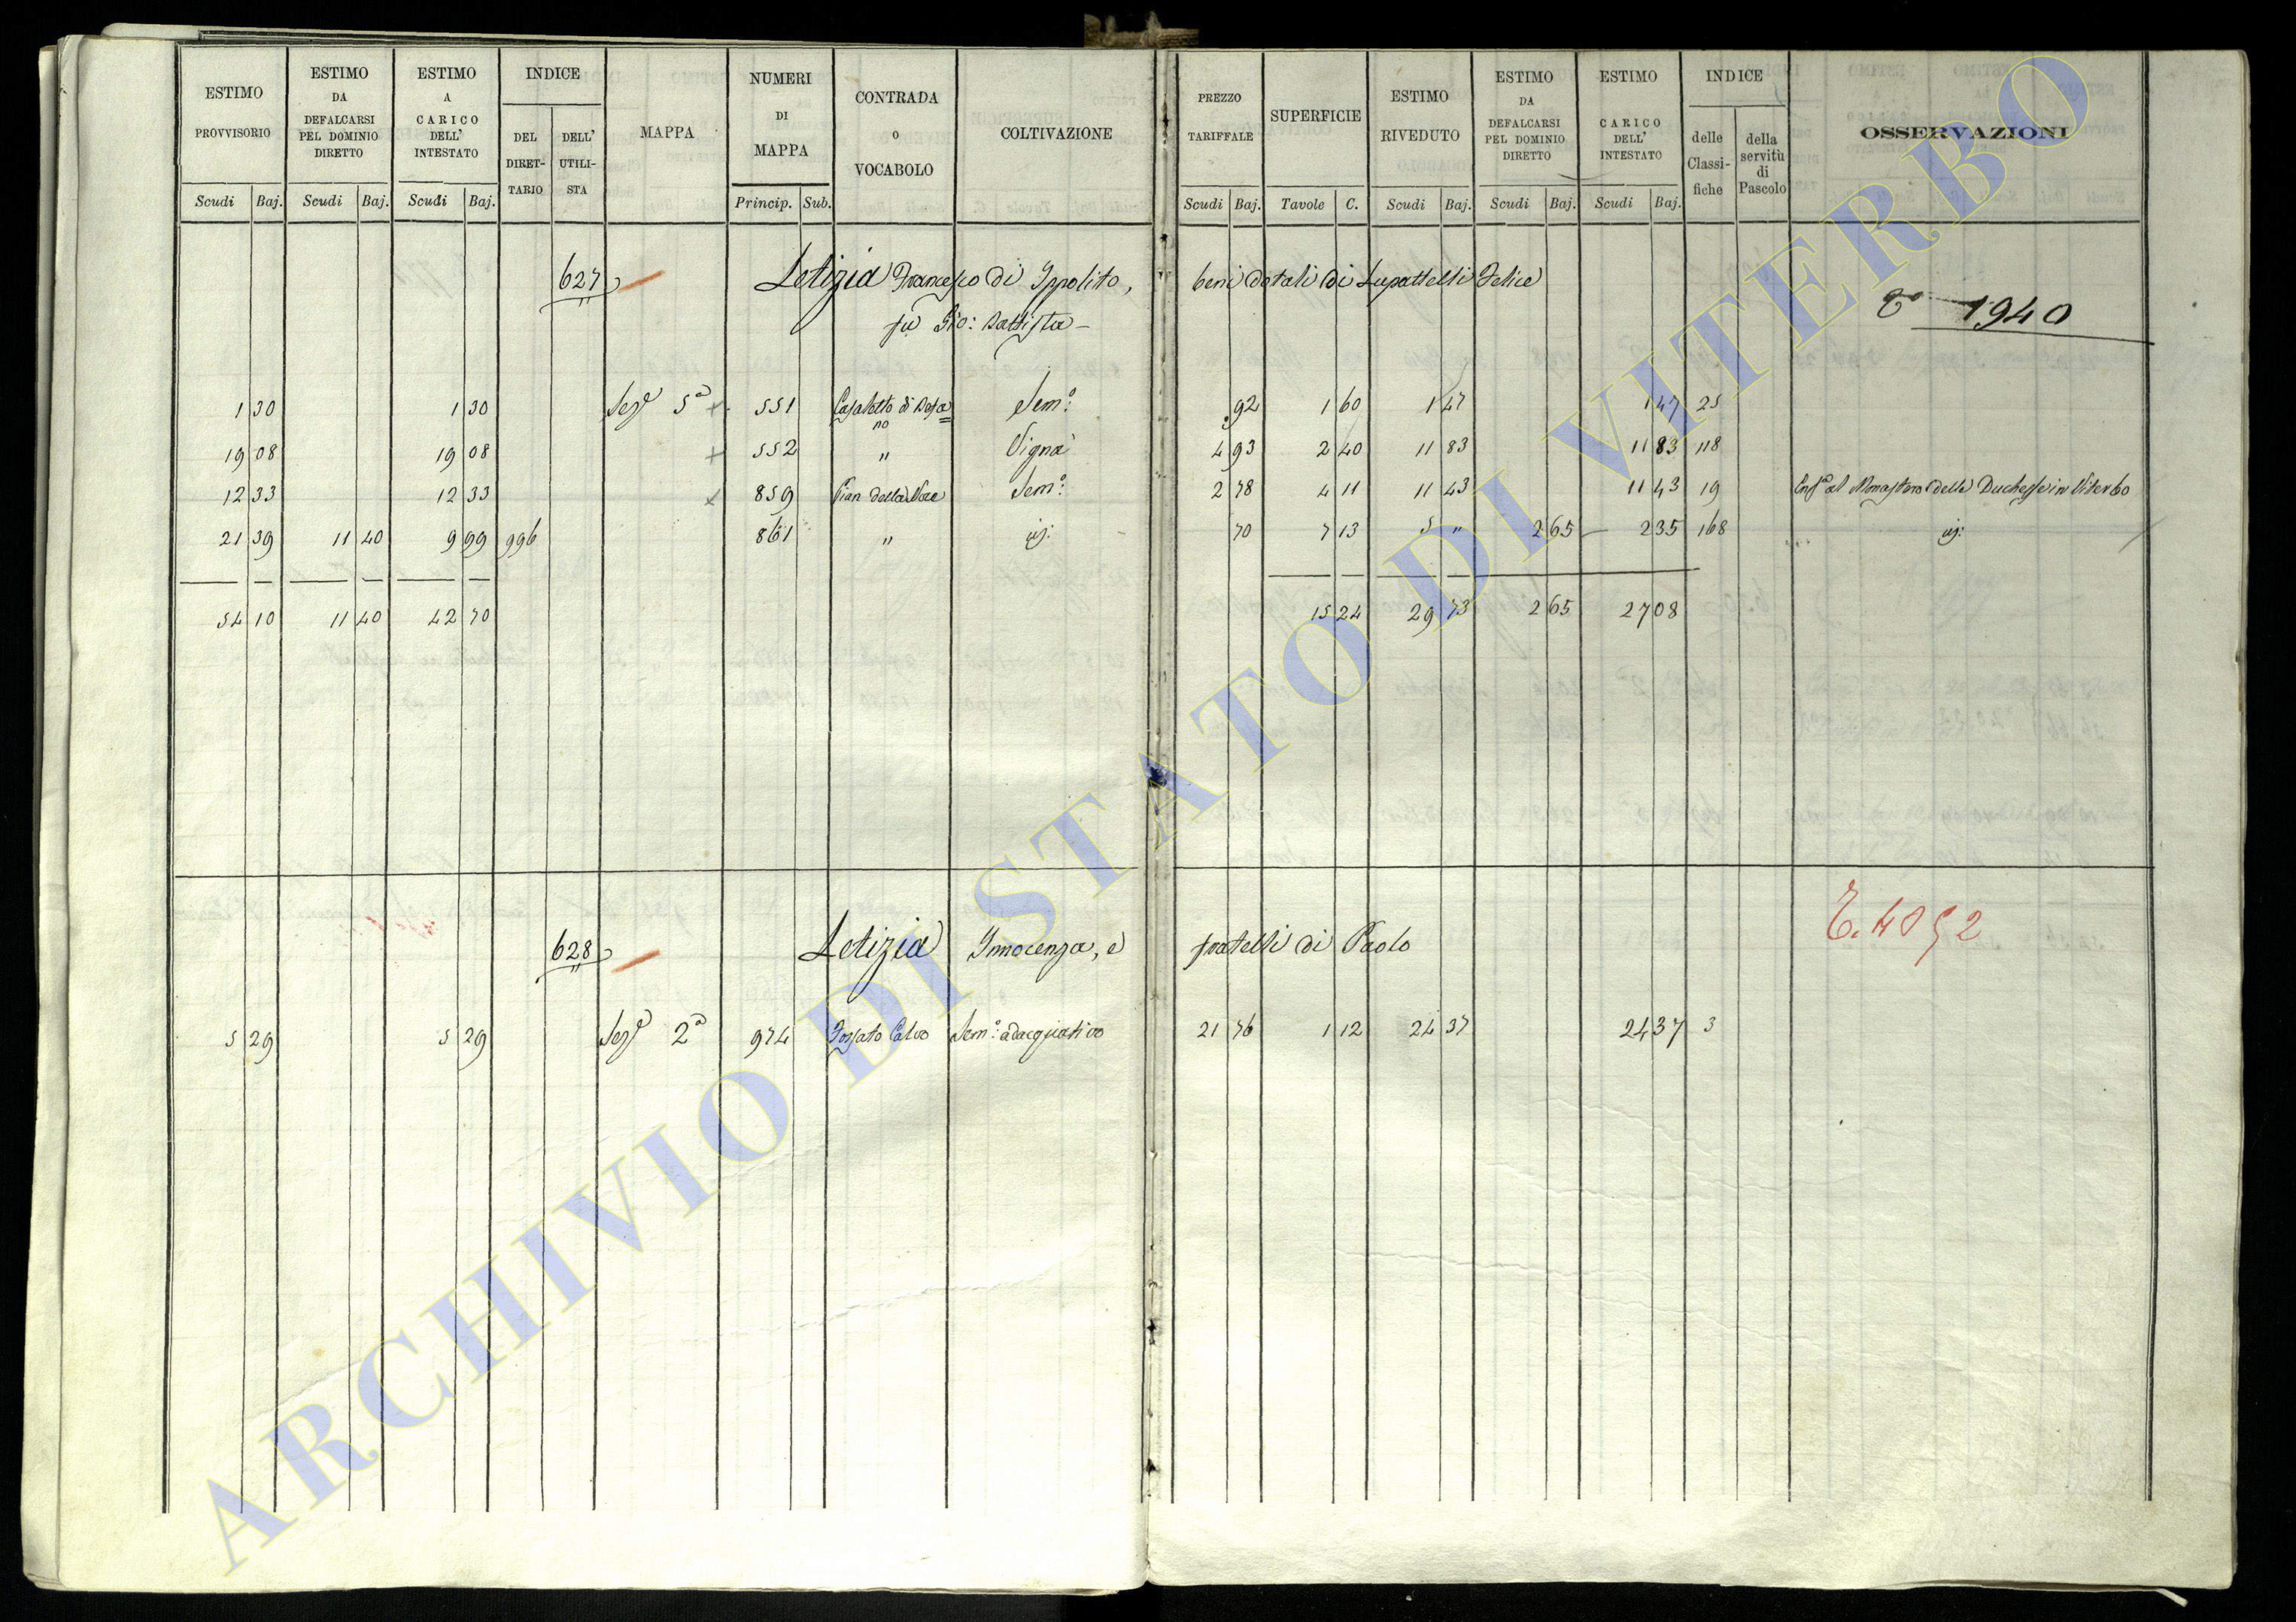 ESTIMO PROVVISORIO Scudi Baj.
ESTIMO DA DEFALCARSI PEL DOMINIO DIRETTO Scudi Baj.
ESTIMO A CARICO DELL' INTESTATO Scudi Baj.
INDICE DEL DIRET- TARIO DELL' UTILI- STA
MAPPA
NUMERI DI MAPPA Princip. Sub.
CONTRADA O VOCABOLO
COLTIVAZIONE
PREZZO TARIFFALE Scudi Baj.
SUPERFICIE Tavole C.
ESTIMO RIVEDUTO Scudi Baj.
ESTIMO DA DEFALCARSI PEL DOMINIO DIRETTO Scudi Baj.
ESTIMO CARICO DELL' INTESTATO Scudi Baj.
INDICE delle Classi- fiche della servitù di Pascolo
OSSERVAZIONI
627 Letizia Francesco di Ippolito, beni dotali di Lupattelli Felice
fu Gio: Battista
1940
1 30 1 30 Sezᵉ 5ª + 551 Casaletto di Bosa no Semᵒ: 92 1 60 1 47 1 47 25
19 08 19 08 + 552 " Vigna 4 93 2 40 11 83 11 83 118
12 33 12 33 x 859 Pian della Noce Semᵒ: 2 78 4 11 11 43 11 43 19 Enfᵃ al Monastero delle Duchesse in Viterbo
21 39 11 40 9 99 996 861 " id: 70 7 13 5 " 2 65 2 35 168 id:
54 10 11 40 42 70 15 24 29 73 2 65 27 08
628 Letizia Innocenza, e fratelli di Paolo
E. 4052
5 29 5 29 Sezᵉ 2ª 974 Fossato Calvo Semᵒ: adacquativo 21 76 1 12 24 37 24 37 3
ARCHIVIO DI STATO DI VITERBO